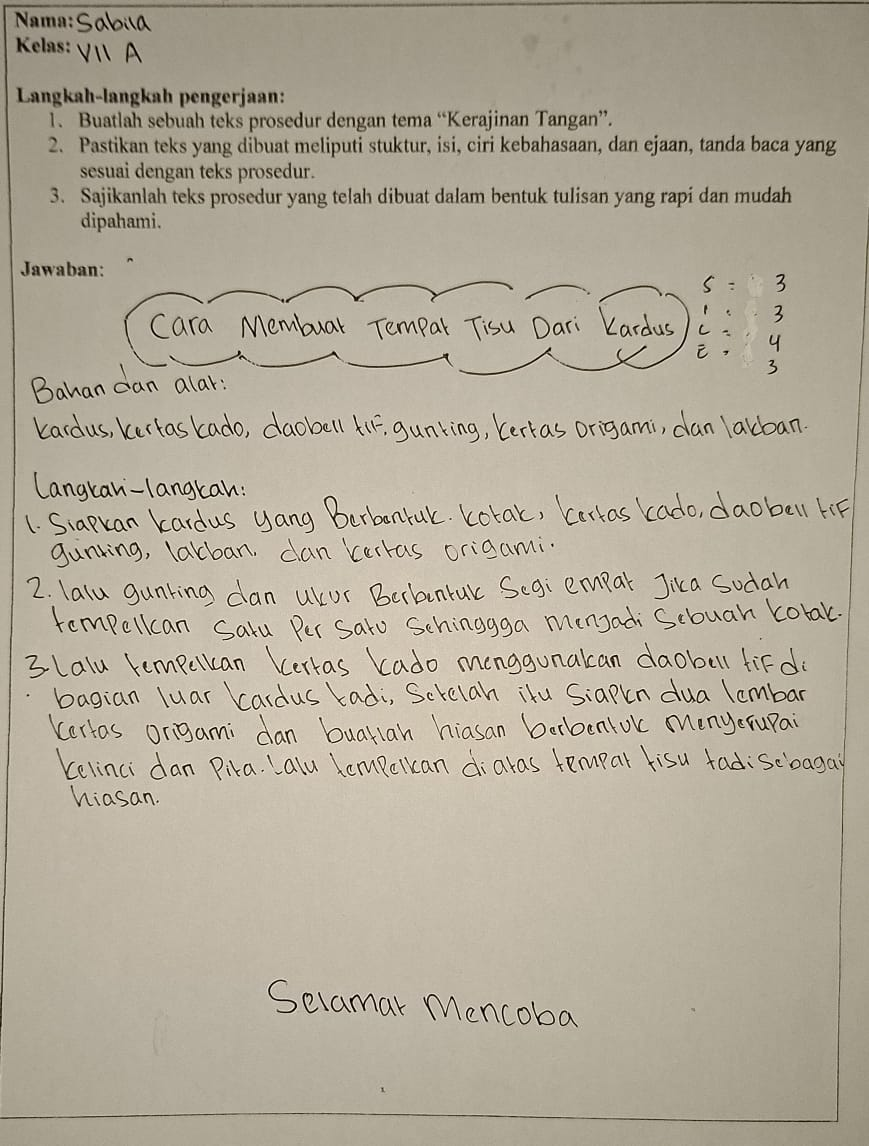 Nama: Sabila
Kelas: VII A
Langkah-langkah pengerjaan:
1. Buatlah sebuah teks prosedur dengan tema “Kerajinan Tangan”.
2. Pastikan teks yang dibuat meliputi stuktur, isi, ciri kebahasaan, dan ejaan, tanda baca yang
sesuai dengan teks prosedur.
3. Sajikanlah teks prosedur yang telah dibuat dalam bentuk tulisan yang rapi dan mudah
dipahami.
Jawaban:
S = 3
I = 3
Cara Membuat Tempat Tisu Dari Kardus
C = 4
E = 3
Bahan dan alat:
Kardus, kertas kado, daobell tif, gunting, kertas origami, dan lakban.
Langkah-langkah:
1. Siapkan kardus yang Berbentuk. kotak, kertas kado, daobell tif
gunting, lakban. dan kertas origami.
2. lalu gunting dan ukur Berbentuk Segi empat Jika Sudah
tempelkan Satu Per Satu Sehinggga menjadi Sebuah kotak.
3. Lalu tempelkan kertas kado menggunakan daobell tif di
bagian luar kardus tadi, Setelah itu Siapkn dua lembar
kertas origami dan buatlah hiasan berbentuk menyerupai
kelinci dan Pita. Lalu tempelkan diatas tempat tisu tadi sebagai
hiasan.
Selamat Mencoba
1